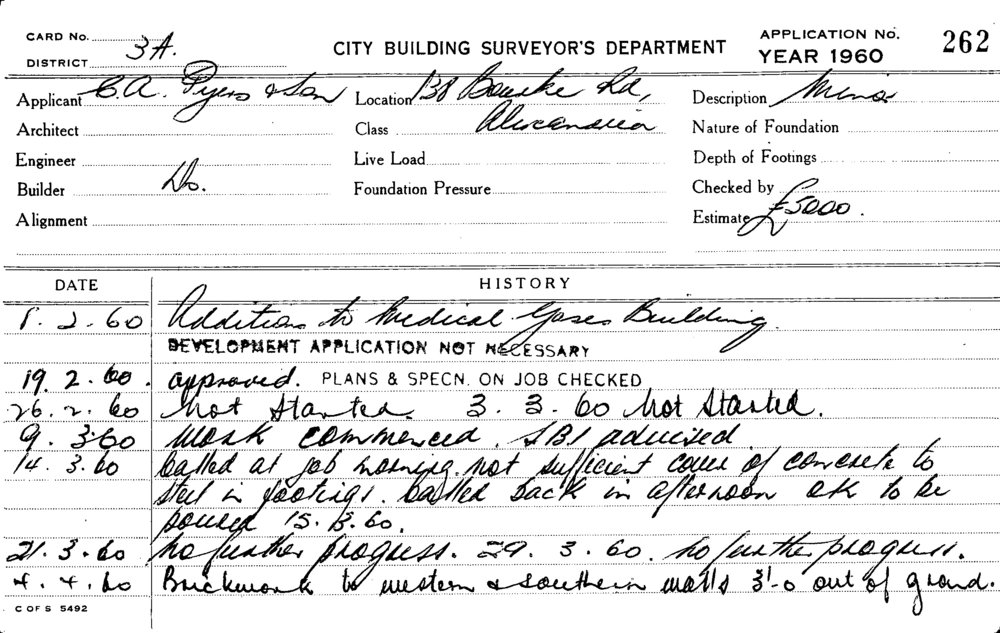 CARD No.
DISTRICT 3A.
CITY BUILDING SURVEYOR'S DEPARTMENT
APPLICATION No. 262
YEAR 1960
Applicant C.A. Pyers & Son
Location 138 Bourke Rd,
Description Minor
Architect
Class Alexandria
Nature of Foundation
Engineer
Live Load
Depth of Footings
Builder Do.
Foundation Pressure
Checked by
Alignment
Estimate £5000.
DATE
HISTORY
1.2.60 Additions to Medical Gases Building.
DEVELOPMENT APPLICATION NOT NECESSARY
19.2.60. approved. PLANS & SPECN. ON JOB CHECKED
26.2.60 Not Started. 3.3.60 Not Started.
9.3.60 Work commenced. SBI advised
14.3.60 Called at job morning. not sufficient cover of concrete to
steel in footings. Called back in afternoon OK to be
poured 15.3.60.
21.3.60 no further progress. 29.3.60. no further progress.
4.4.60 Brickwork to western & southern walls 3'-0 out of ground.
C OF S 5492